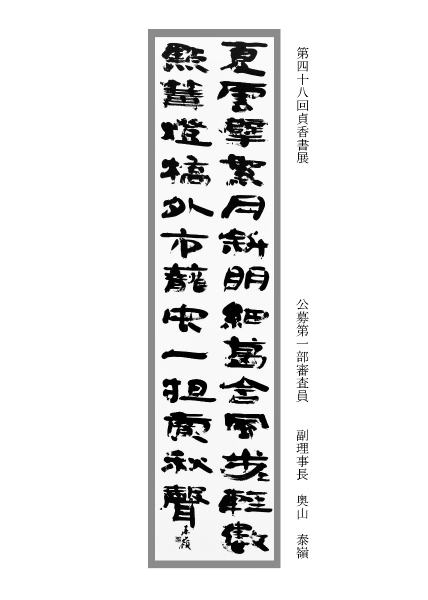 第四十八回貞香書展
公募第一部審査員 副理事長 奥山 泰嶺
夏雲擘絮月斜明細葛含風歩々輕數
點篝燈橋外市籠虫一担賣秋聲
泰嶺